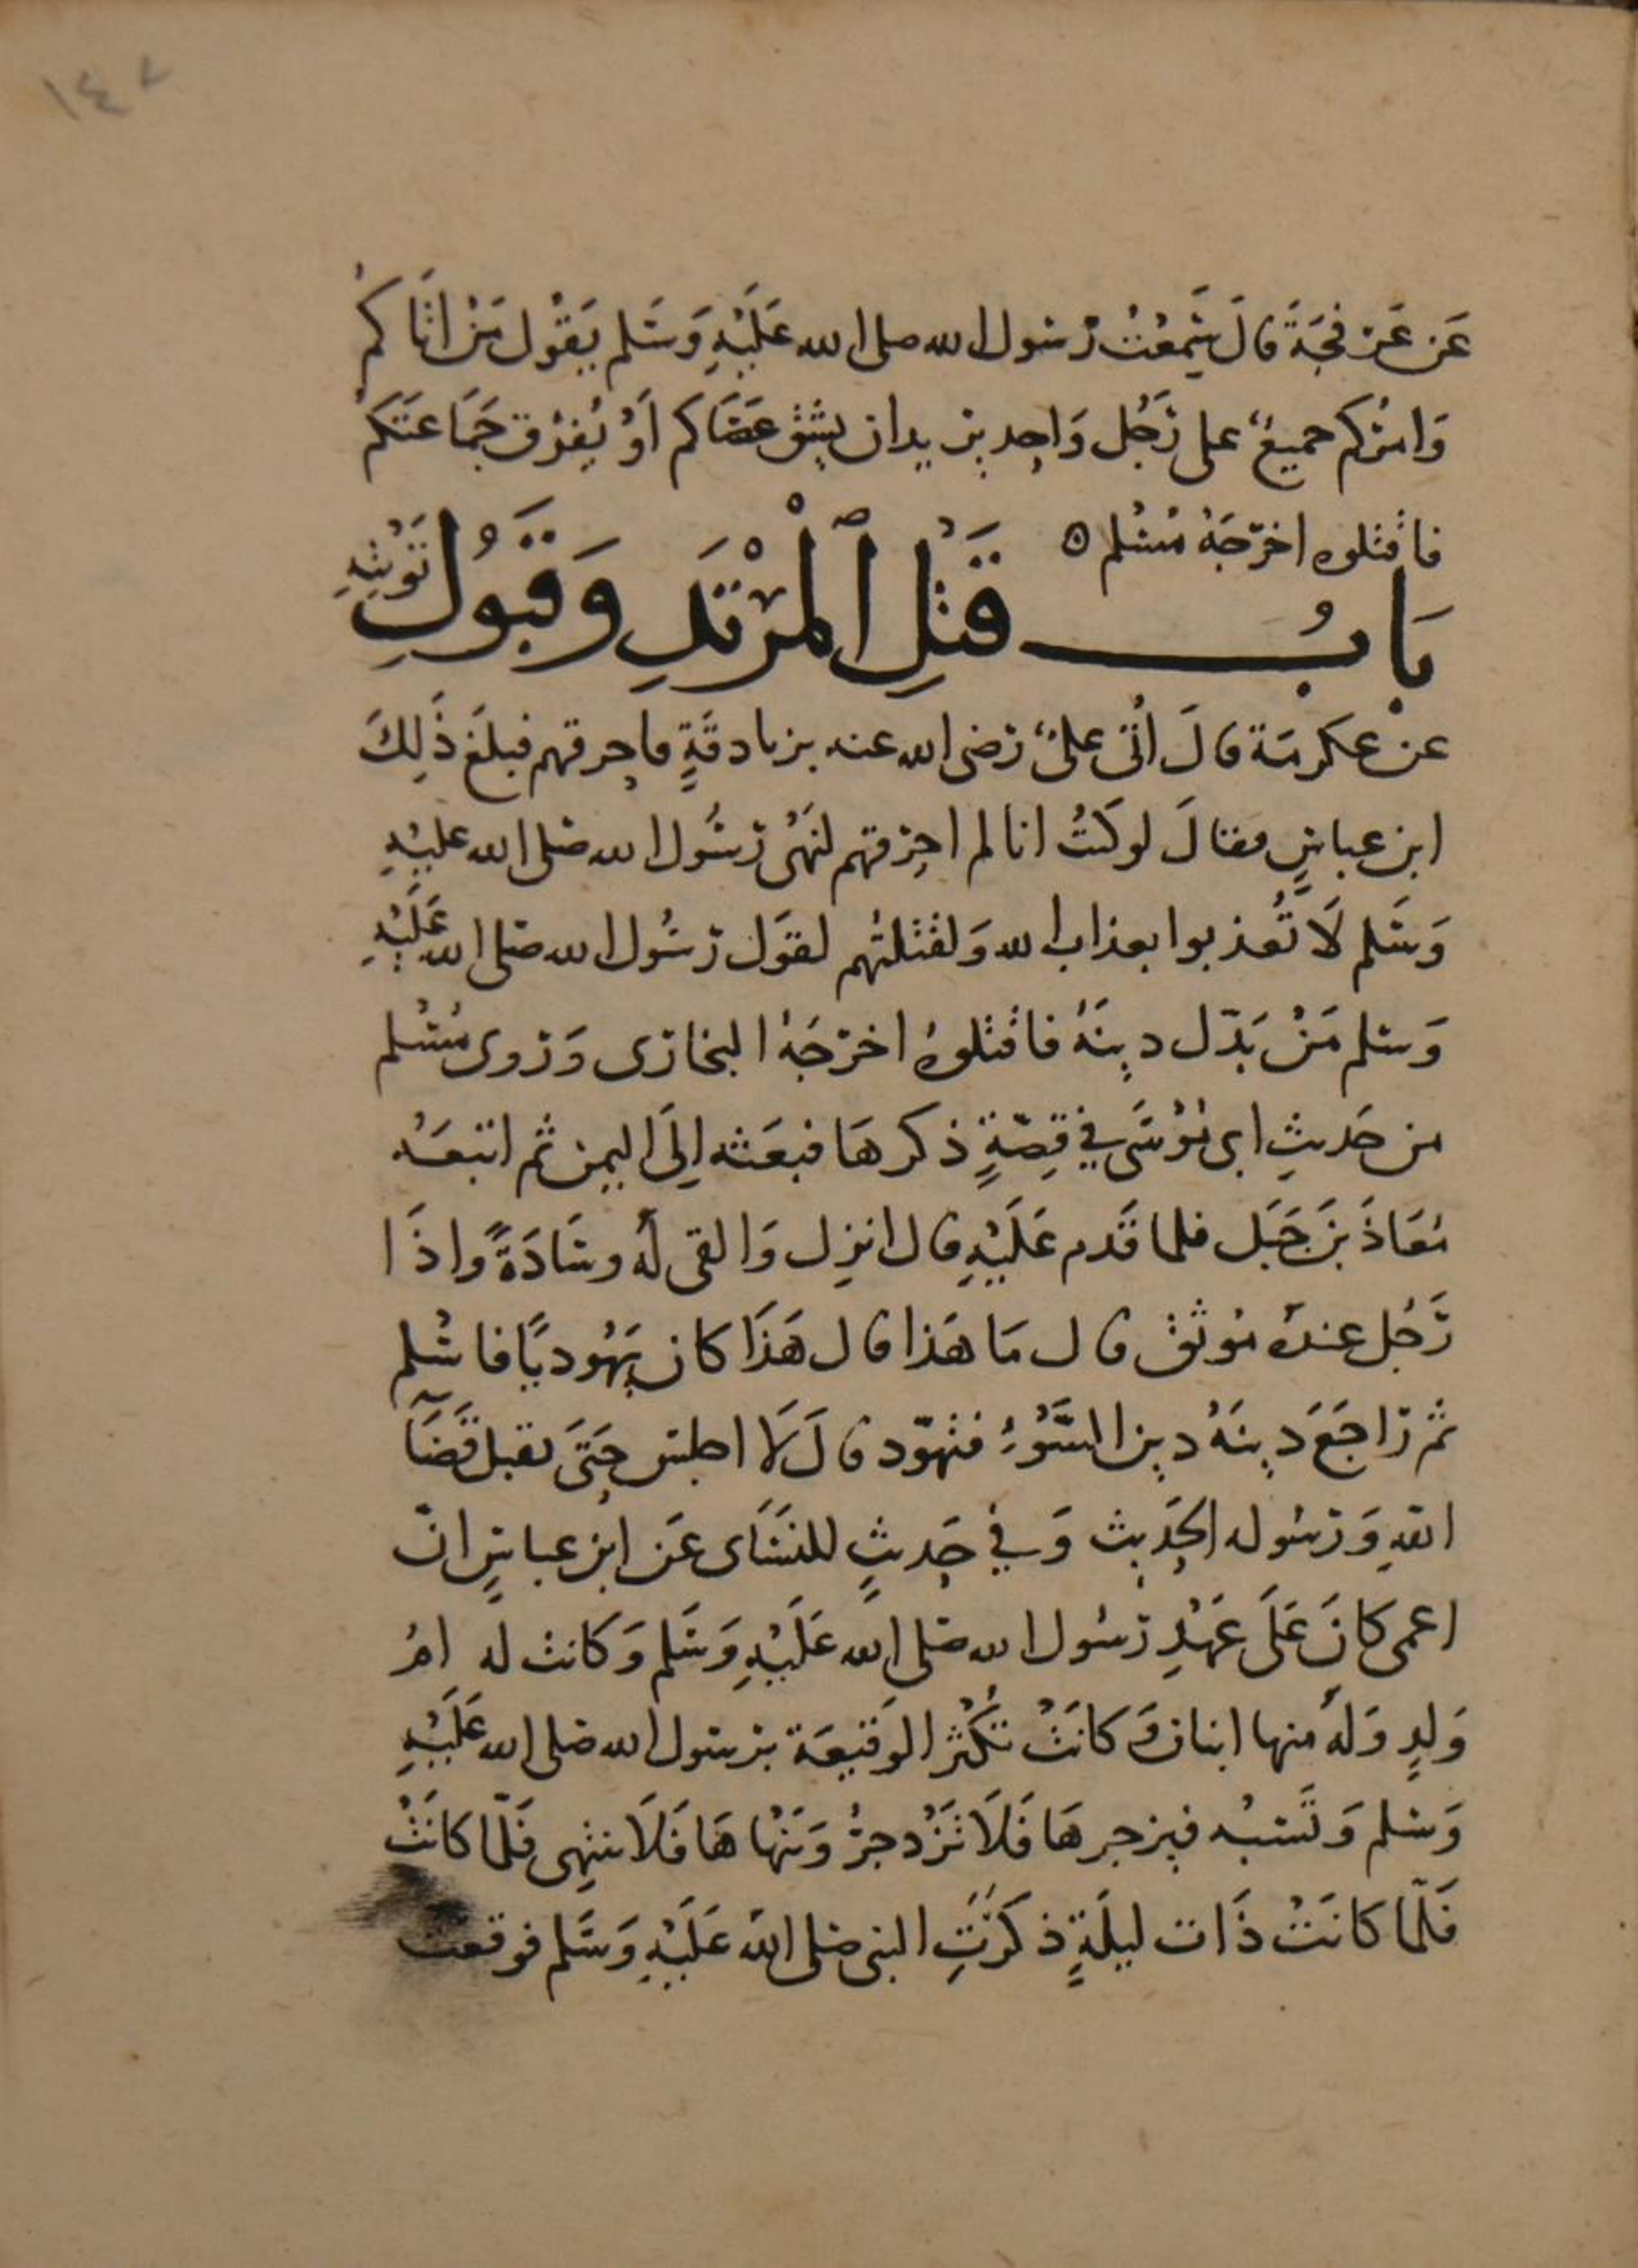 ١٤٧
عَن عَرْفجَةَ قالَ سَمِعْتُ رَسُول الله صلى الله عَلَيْهِ وَسَلم يَقُول مَنْ اتَاكمْ
وَامْرُكم جميعٌ على رَجُل وَاحِد يريد ان يشق عَصَاكم اَوْ يُفرّق جَمَاعَتَكمْ
فاقتلوه اخرّجَهُ مُسْلم ه
بَابُ قَتْلِ الْمُرْتَدِ وَقَبُولِ تَوْبَتِهِ
عنْ عكرمَة قالَ اُتى علىٌ رَضى الله عنه بزنادقَةٍ فاحرقهم فبلغَ ذَلِكَ
ابن عباسٍ فقالَ لو كنتُ انا لم احرِقهم لنَهْى رَسُول الله صَلى الله عليْهِ
وَسَلم لَا تُعذبوا بعذاب الله وَلقتلتُهم لقوَل رَسُول الله صَلى الله عَلَيْهِ
وَسَلم مَنْ بَدّل دِينَهُ فاقتلوهُ اخرَجَهُ البخارَى وَرَوى مُسْلم
من حَديثِ ابى مُوْسَى في قِصّةٍ ذكرهَا فبعَثه اِلَى اليمن ثم اتبعَهُ
مُعَاذَ بنَ جَبَل فلما قَدم عَلَيْهِ قال انزِل وَالقى لهُ وسَادَةً واذَا
رَجُل عندهُ مُوثق قال مَا هَذا قال هَذَا كان يَهُوديًا فاسْلم
ثم رَاجَعَ دِينَهُ دِين السَّوْءِ فتهوّد قالَ لَا اجلس حَتىَ يقتل قَضَآ
اللهِ وَرَسُوله الحَدِيث وَفي حَدِيثٍ للنسَاى عَن ابْن عباسٍ انّ
اعمى كانَ عَلَى عَهْدِ رَسُول الله صَلى الله عَلَيْهِ وَسَلم وَكانت له امُ
وَلدٍ وَلهُ منها ابنان وَكانَتْ تكْثر الوَقيعَة برسول الله صَلى الله عَلَيْهِ
وَسَلم وَتَسُبْهُ فيزجرهَا فَلَا تَزْدجرُ وَيَنْهاهَا فَلَا تنتهِى فَلمّا كانَتْ
فَلمّا كانَتْ ذَات ليلَةٍ ذكَرْتِ النبى صَلى اللهُ عَلَيْهِ وَسَلم فوقعت